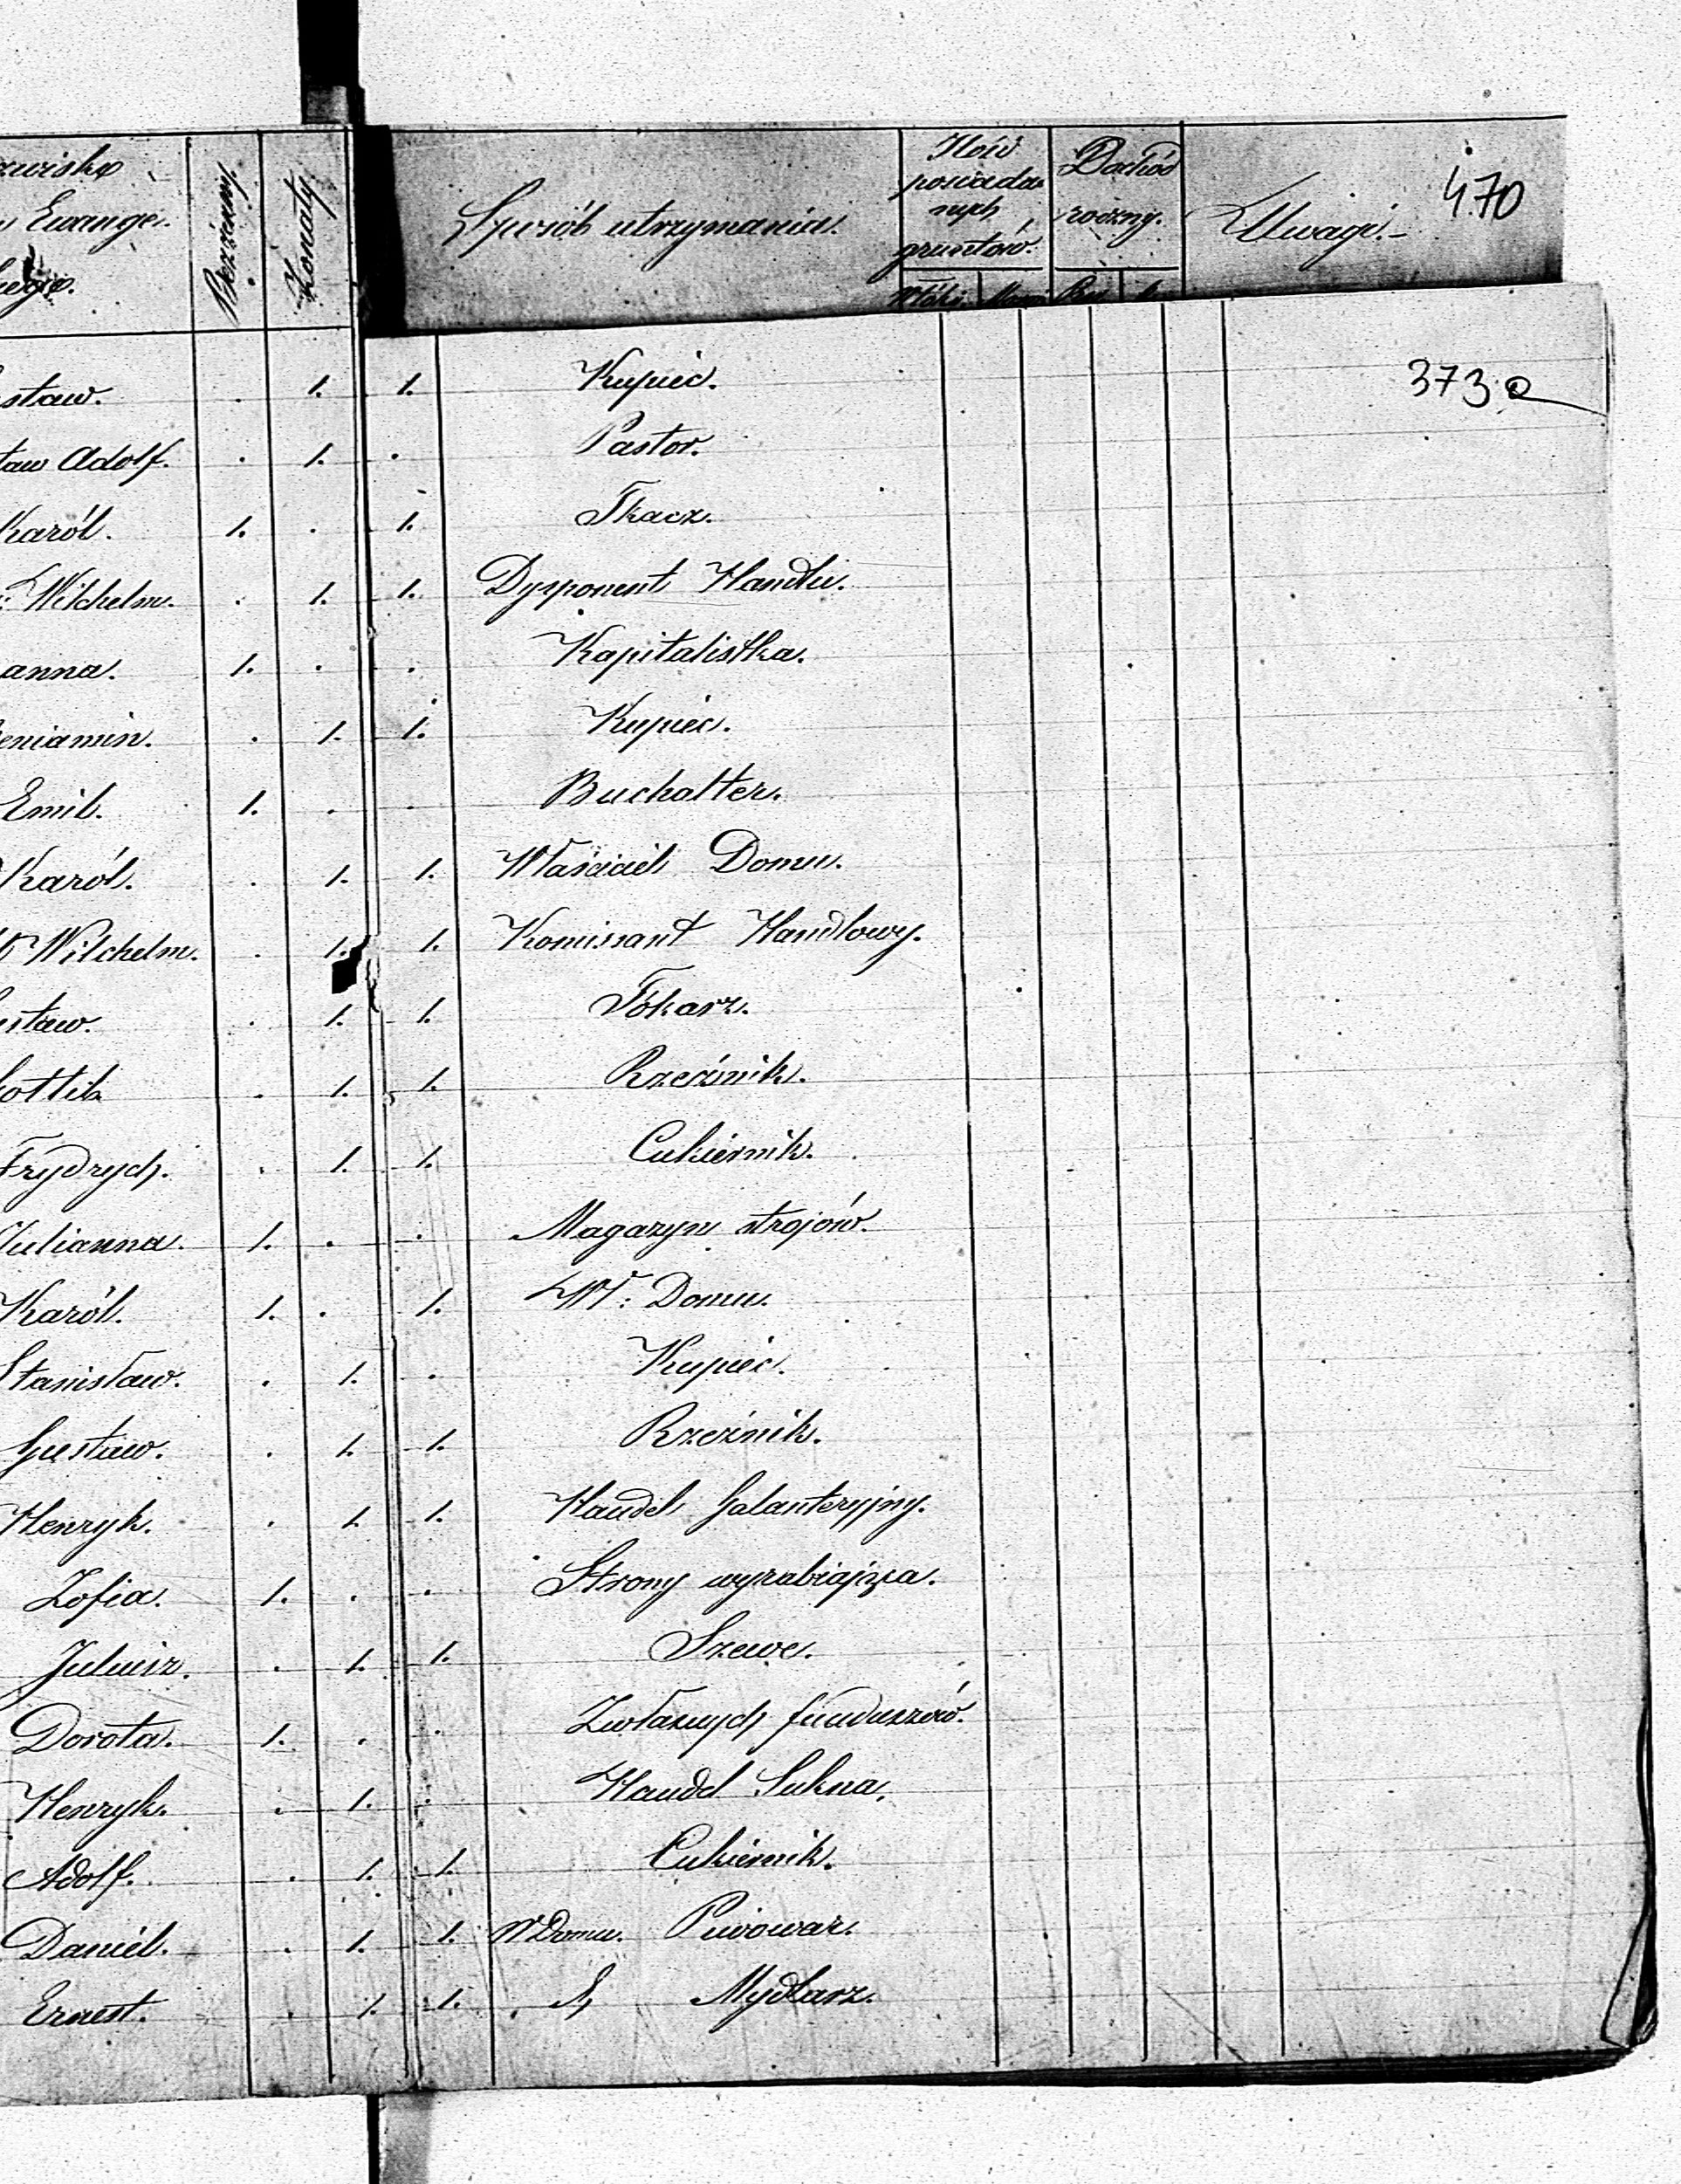 Bezżenny.
Żonaty
Sposób utrzymania.
Ilość
posiada-
nych
gruntów.
Dochód
roczny.
Uwagi.-
470
373.
staw. . 1. 1. Kupiec.
taw Adolf. . 1. . Pastor.
Karól. 1. . 1. Tkacz.
Wilchelm. . 1. 1. Dysponent Handlu.
anna. 1. . . Kapitalistka.
eniamin. . 1. 1. Kupiec.
Emil. 1. . . Buchalter.
Karól. . 1. 1. Właściciel Domu.
Wilchelm. . 1. 1. Komissant Handlowy.
staw. . 1. 1. Tókarz.
ottlib . 1. 1. Rzeźnik.
Frydrych. . 1. 1. Cukiernik.
Julianna. 1. . . Magazyn strojów.
Karól. 1. . 1. Wł: Domu.
Stanisław. . 1. . Kupiec.
Gustaw. . 1. 1. Rzeźnik.
Henryk. . 1. 1. Handel Galanteryjny.
Zofia. 1. . . Strony wyrabiająca.
Juliusz. . 1. 1. Szewc.
Dorota. 1. . . Zwłasnych funduszów.
Henryk. . 1. . Handel Sukna.
Adolf. . 1. 1. Cukiernik.
Daniel. . 1. 1. W Domu. Piwowar.
Ernest. . 1. 1. Mydlarz.